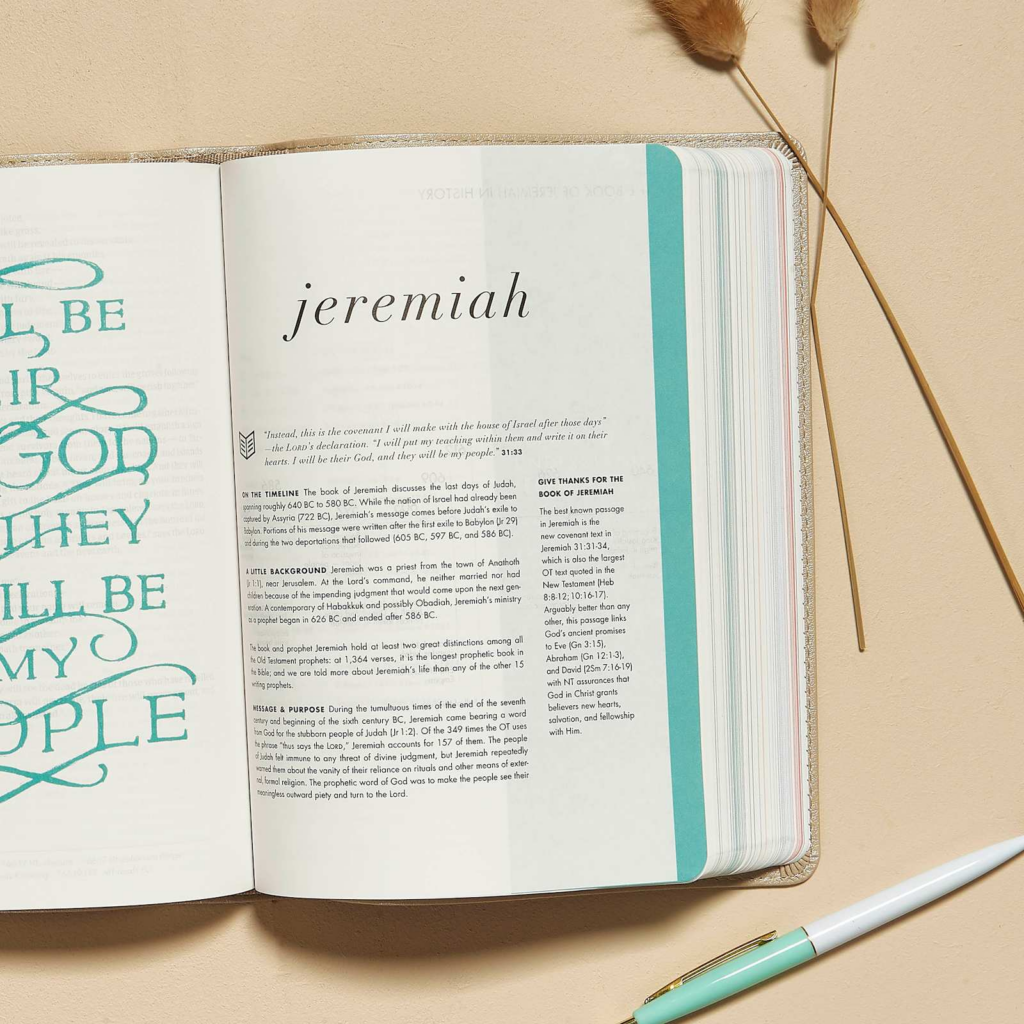 LL BE
IR
GOD
THEY
ILL BE
MY
OPLE
jeremiah
"Instead, this is the covenant I will make with the house of Israel after those days"
—the LORD's declaration. "I will put my teaching within them and write it on their
hearts. I will be their God, and they will be my people." 31:33
ON THE TIMELINE The book of Jeremiah discusses the last days of Judah,
spanning roughly 640 BC to 580 BC. While the nation of Israel had already been
captured by Assyria (722 BC), Jeremiah's message comes before Judah's exile to
Babylon. Portions of his message were written after the first exile to Babylon (Jr 29)
and during the two deportations that followed (605 BC, 597 BC, and 586 BC).
A LITTLE BACKGROUND Jeremiah was a priest from the town of Anathoth
(Jr 1:1), near Jerusalem. At the Lord's command, he neither married nor had
children because of the impending judgment that would come upon the next gen-
eration. A contemporary of Habakkuk and possibly Obadiah, Jeremiah's ministry
as a prophet began in 626 BC and ended after 586 BC.
The book and prophet Jeremiah hold at least two great distinctions among all
the Old Testament prophets: at 1,364 verses, it is the longest prophetic book in
the Bible; and we are told more about Jeremiah's life than any of the other 15
writing prophets.
MESSAGE & PURPOSE During the tumultuous times of the end of the seventh
century and beginning of the sixth century BC, Jeremiah came bearing a word
from God for the stubborn people of Judah (Jr 1:2). Of the 349 times the OT uses
the phrase "thus says the LORD," Jeremiah accounts for 157 of them. The people
of Judah felt immune to any threat of divine judgment, but Jeremiah repeatedly
warned them about the vanity of their reliance on rituals and other means of exter-
nal, formal religion. The prophetic word of God was to make the people see their
meaningless outward piety and turn to the Lord.
GIVE THANKS FOR THE
BOOK OF JEREMIAH
The best known passage
in Jeremiah is the
new covenant text in
Jeremiah 31:31-34,
which is also the largest
OT text quoted in the
New Testament (Heb
8:8-12; 10:16-17).
Arguably better than any
other, this passage links
God's ancient promises
to Eve (Gn 3:15),
Abraham (Gn 12:1-3),
and David (2Sm 7:16-19)
with NT assurances that
God in Christ grants
believers new hearts,
salvation, and fellowship
with Him.